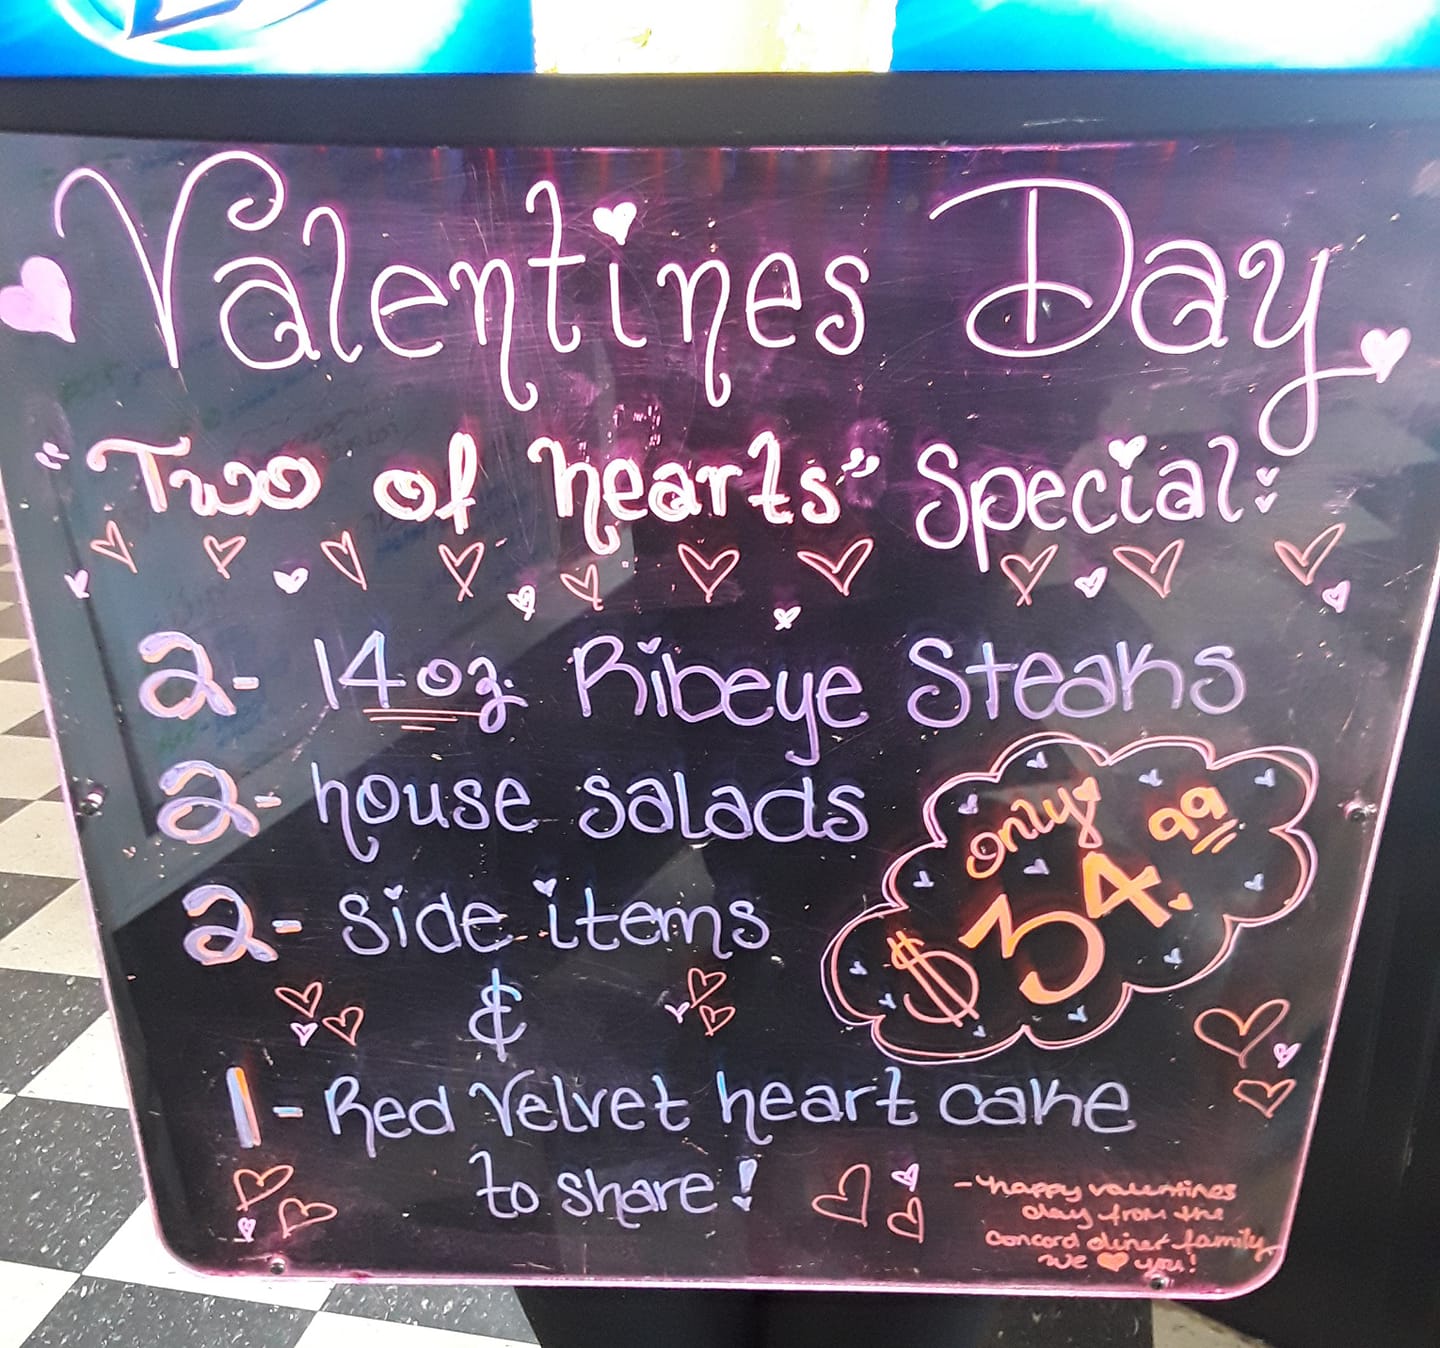 Valentines Day
"Two of hearts" Special:
2- 14oz. Ribeye Steaks
2- house salads
only
$34.99
2- side items
&
1- Red Velvet heart cake
to share!
- happy valentines
day from the
concord diner family
we ♥ you!